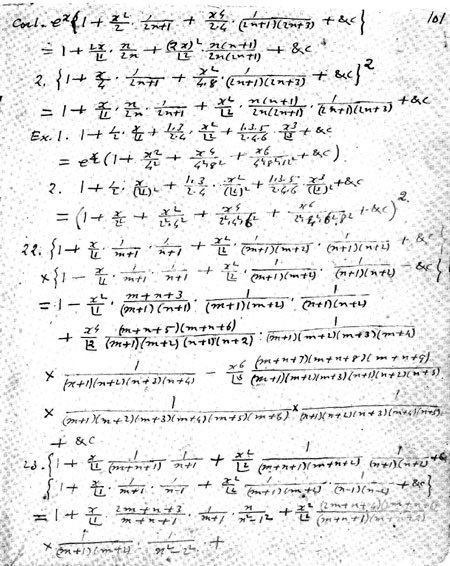 Corl. e^x {1 + x²/2 · 1/(2n+1) + x⁴/(2·4) · 1/((2n+1)(2n+3)) + &c} 101
= 1 + 2x/⌊1 · n/2n + (2x)²/⌊2 · n(n+1)/(2n(2n+1)) + &c
2. {1 + x/4 · 1/(2n+1) + x²/(4·8) · 1/((2n+1)(2n+3)) + &c}²
= 1 + x/⌊1 · n/2n · 1/(2n+1) + x²/⌊2 · n(n+1)/(2n(2n+1)) · 1/((2n+1)(2n+3)) + &c
Ex. 1. 1 + 1/2 · x/⌊1 + 1·3/2·4 · x²/⌊2 + 1·3·5/2·4·6 · x³/⌊3 + &c
= e^(x/2) (1 + x²/4² + x⁴/4²8² + x⁶/4²8²12² + &c)
2. 1 + 1/2 · x/(⌊1)² + 1·3/2·4 · x²/(⌊2)² + 1·3·5/2·4·6 · x³/(⌊3)² + &c
22. {1 + x/⌊1 · 1/(m+1) · 1/(n+1) + x²/⌊2 · 1/((m+1)(m+2)) · 1/((n+1)(n+2)) + &c}
× {1 − x/⌊1 · 1/(m+1) · 1/(n+1) + x²/⌊2 · 1/((m+1)(m+2)) · 1/((n+1)(n+2)) − &c}
= 1 − x²/⌊1 · (m+n+3)/((m+1)(n+1)) · 1/((m+1)(m+2)) · 1/((n+1)(n+2))
+ x⁴/⌊2 · (m+n+5)(m+n+6)/((m+1)(m+2)(n+1)(n+2)) · 1/((m+1)(m+2)(m+3)(m+4))
× 1/((n+1)(n+2)(n+3)(n+4)) − x⁶/⌊3 (m+n+7)(m+n+8)(m+n+9)/((m+1)(m+2)(m+3)(n+1)(n+2)(n+3))
× 1/((m+1)(m+2)(m+3)(m+4)(m+5)(m+6)) ×
+ &c
23. {1 + x/⌊1 · 1/(m+n+1) · 1/(n+1) + x²/⌊2 · 1/((m+n+1)(m+n+2)) · 1/((n+1)(n+2)) +
{1 + x/⌊1 · 1/(m+1) · 1/(n-1) + x²/⌊2 · 1/((m+1)(m+2)) · 1/((n-1)(n-2)) + &c}
= 1 + x/⌊1 · (2m+n+3)/(m+n+1) · 1/(m+1) · n/(n²-1²) + x²/⌊2
× 1/((m+1)(m+2)) · 1/(n²-2²) +